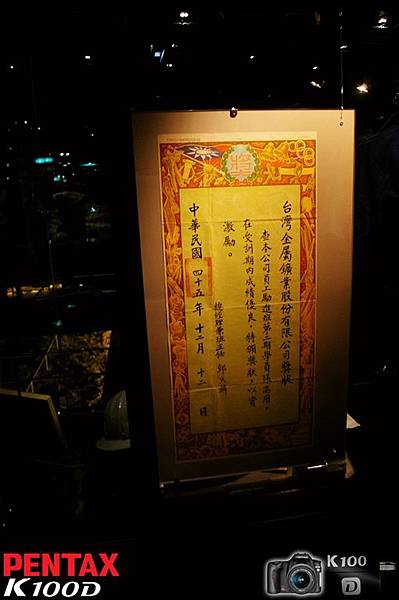 獎
台灣金屬鑛業股份有限公司獎狀
查本公司員工勵進班第二期學員張昌用，
在受訓期內成績優良，特頒獎狀，以資
激勵。
總經理兼班主任
中華民國四十五年十二月十二日
PENTAX
K100D
K100
D